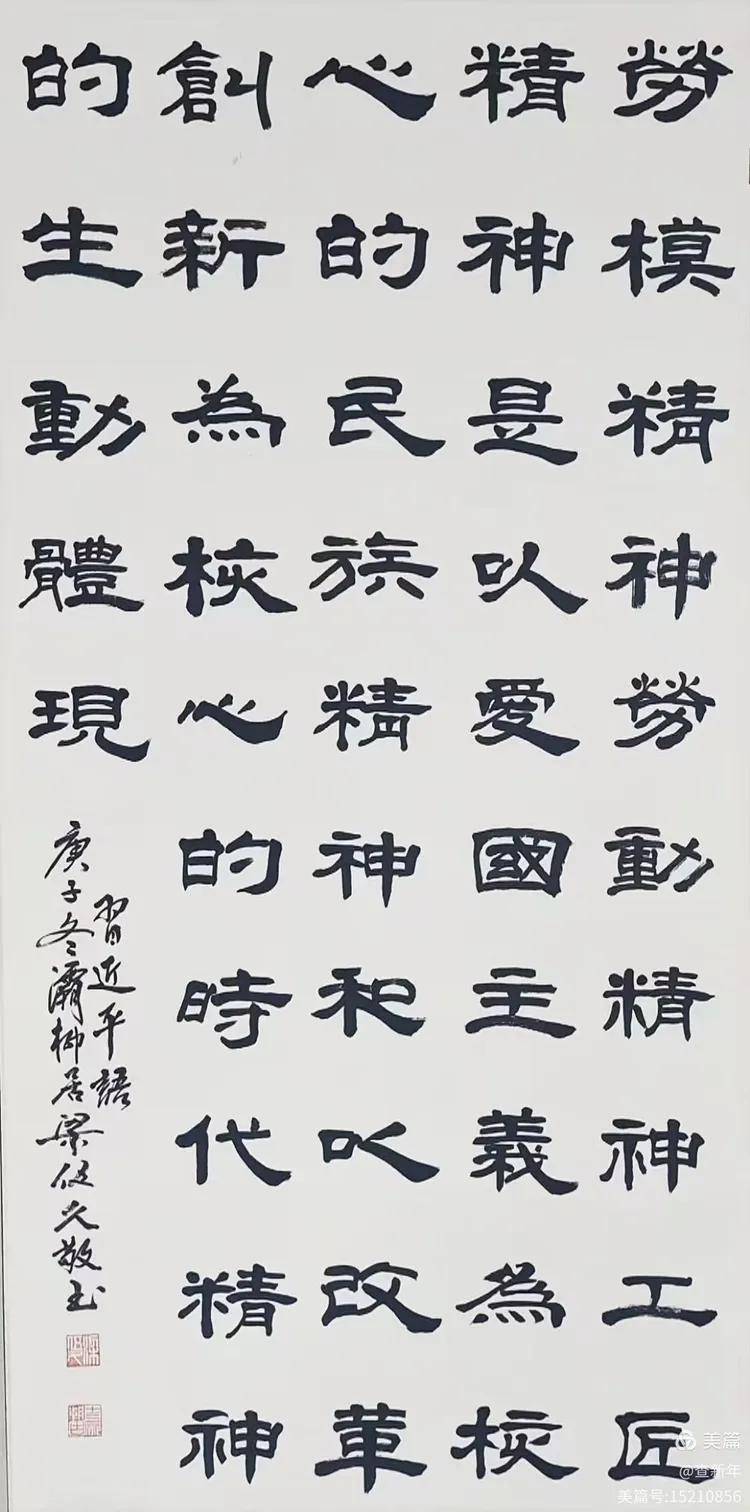 勞模精神勞動精神工匠
精神是以愛國主義為核
心的民族精神和以改革
創新為核心的時代精神
的生動體現
習近平語
庚子冬灞柳居梁俊久敬书
美篇
@查新年
美篇号:15210856